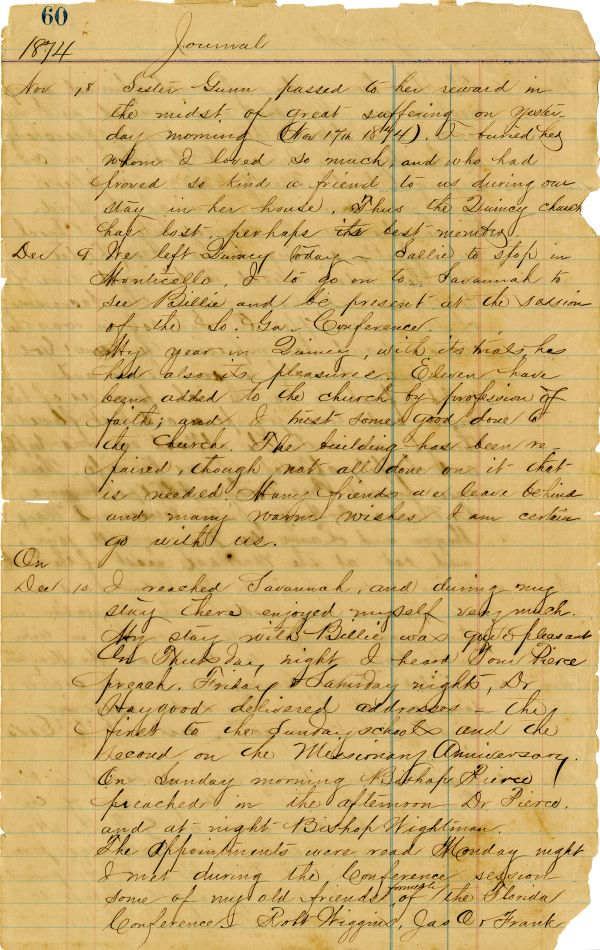 60
1874 Journal
Nov 18 Sister Gunn passed to her reward in
the midst of great suffering on yester-
day morning (Nov 17th 1874). I buried her
whom I loved so much and who had
proved so kind a friend to us during our
stay in her house. Thus the Quincy church
has lost, perhaps its best member.
Dec 9 We left Quincy today - Sallie to stop in
Monticello, I to go on to Savannah to
see Billie and be present at the session
of the So. Ga. Conference.
My year in Quincy, with its trials, has
had also its pleasures. Eleven have
been added to the church by profession of
faith; and I trust some good done to
the church. The building has been re
paired, though not all done on it that
is needed. Many friends we leave behind
and many warm wishes I am certain
go with us.
On
Dec 10 I reached Savannah, and during my
stay there enjoyed myself very much.
My stay with Billie was quite pleasant
On Thursday night I heard Tom Pierce
preach. Friday & Saturday nights, Dr
Haygood delivered addresses - the
first to the Sunday schools and the
second on the Missionary Anniversary.
On Sunday morning Bishop Pierce
preached in the afternoon Dr Pierce.
and at night Bishop Wightman.
The appointments were read Monday night
I met during the Conference session
some of my old friends formerly of the Florida
Conference. Robt Wiggins, Jas O & Frank